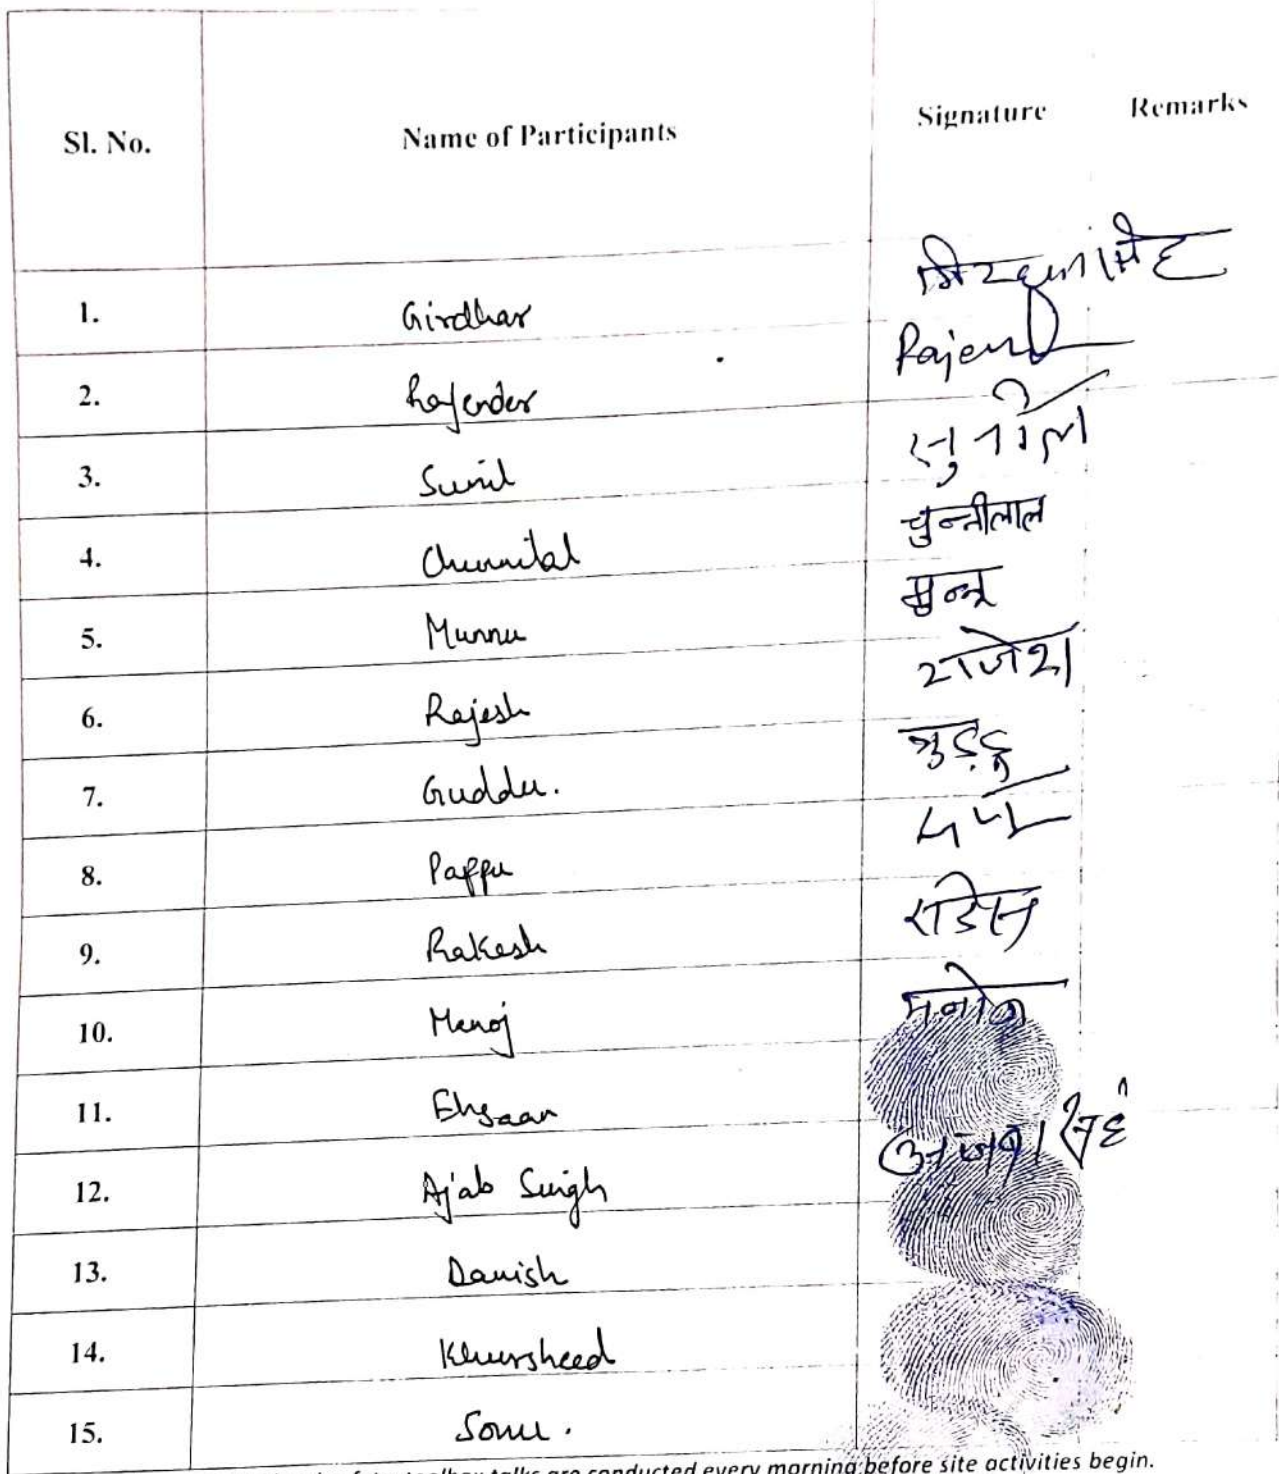 Sl. No. Name of Participants Signature Remarks
1. Girdhar
2. Rajender Rajend
3. Sunil सुनील
4. Chunnilal चुन्नीलाल
5. Munnu मुन्नू
6. Rajesh राजेश
7. Guddu. गुड्डू
8. Pappu
9. Rakesh
10. Manoj मनोज
11. Ehsaan
12. Ajab Singh
13. Danish
14. Khursheed
15. Sonu.
toolbox talks are conducted every morning before site activities begin.